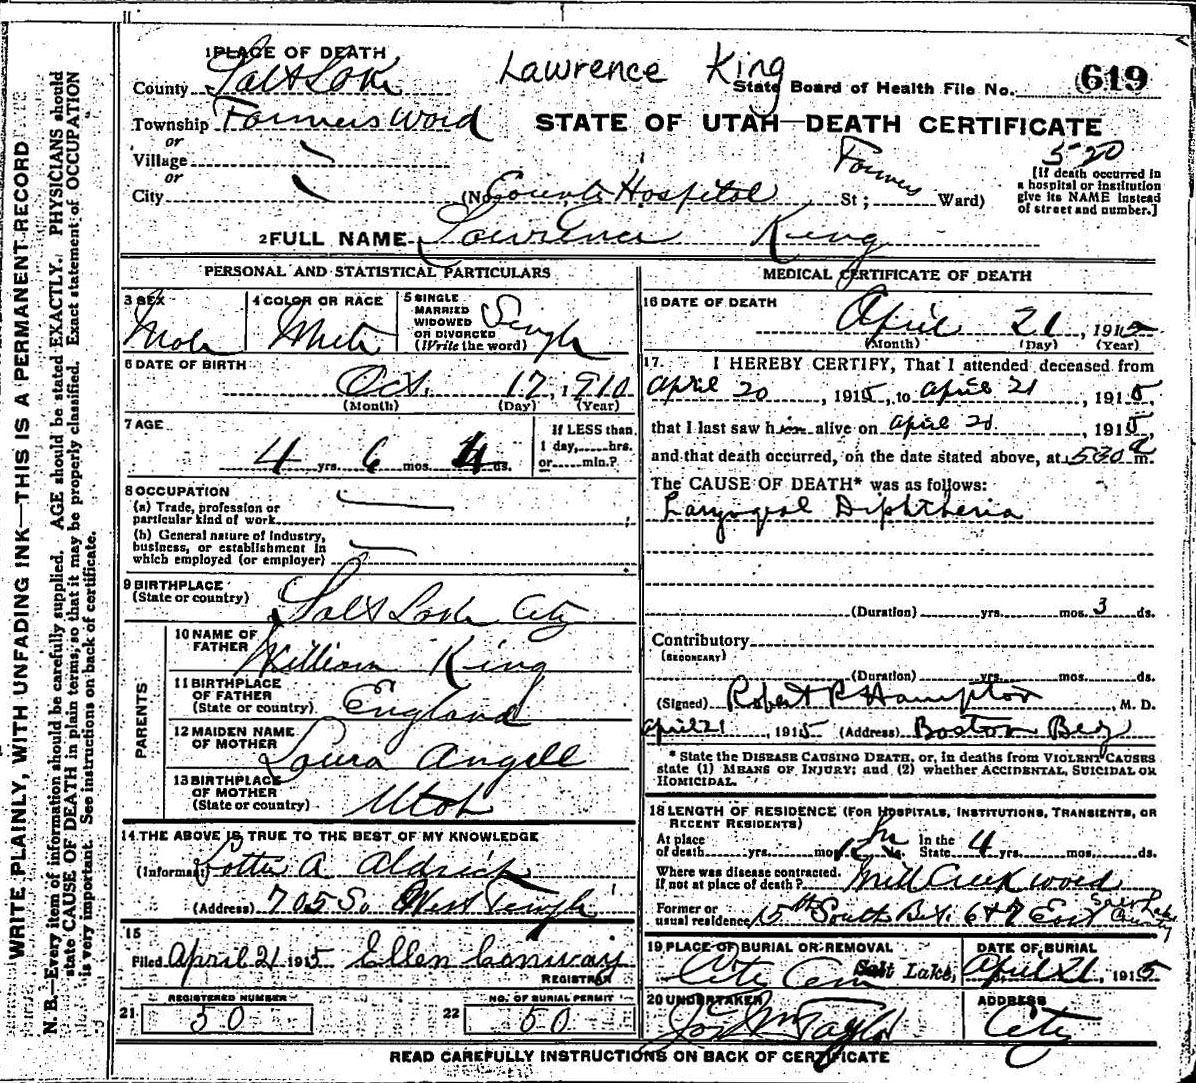 WRITE PLAINLY, WITH UNFADING INK—THIS IS A PERMANENT RECORD
N. B.—Every item of information should be carefully supplied. AGE should be stated EXACTLY. PHYSICIANS should
state CAUSE OF DEATH in plain terms, so that it may be properly classified. Exact statement of OCCUPATION
is very important. See instructions on back of certificate.
1 PLACE OF DEATH
County Salt Lake
Lawrence King
State Board of Health File No. 619
Township Farmers Ward
or
STATE OF UTAH—DEATH CERTIFICATE
Village
or
City
(No. County Hospital St; Farmers Ward)
520
[If death occurred in
a hospital or institution
give its NAME instead
of street and number.]
2 FULL NAME Lawrence King
PERSONAL AND STATISTICAL PARTICULARS
3 SEX
Male
4 COLOR OR RACE
White
5 SINGLE
MARRIED
WIDOWED
OR DIVORCED
(Write the word)
Single
6 DATE OF BIRTH
Oct. 17, 1910
(Month) (Day) (Year)
7 AGE
4 yrs. 6 mos. 4 ds.
If LESS than
1 day, hrs.
or min.?
8 OCCUPATION
(a) Trade, profession or
particular kind of work
(b) General nature of Industry,
business, or establishment in
which employed (or employer)
9 BIRTHPLACE
(State or country)
Salt Lake City
PARENTS
10 NAME OF
FATHER
William King
11 BIRTHPLACE
OF FATHER
(State or country)
England
12 MAIDEN NAME
OF MOTHER
Laura Angell
13 BIRTHPLACE
OF MOTHER
(State or country)
Utah
14 THE ABOVE IS TRUE TO THE BEST OF MY KNOWLEDGE
(Informant) Lottie A Aldrich
(Address) 705 So West Temple
15
Filed April 21 1915 Ellen Conway
REGISTRAR
REGISTERED NUMBER
21 50
NO. OF BURIAL PERMIT
22 50
MEDICAL CERTIFICATE OF DEATH
16 DATE OF DEATH
April 21, 1915
(Month) (Day) (Year)
17. I HEREBY CERTIFY, That I attended deceased from
April 20, 1915, to April 21, 1915,
that I last saw him alive on April 21, 1915,
and that death occurred, on the date stated above, at 530 a m.
The CAUSE OF DEATH* was as follows:
Laryngeal Diphtheria
(Duration) yrs. mos. 3 ds.
Contributory
(SECONDARY)
(Duration) yrs. mos. ds.
(Signed) Robert R Hampton, M. D.
April 21, 1915 (Address) Boston Blg
* State the DISEASE CAUSING DEATH, or, in deaths from VIOLENT CAUSES
state (1) MEANS OF INJURY; and (2) whether ACCIDENTAL, SUICIDAL OR
HOMICIDAL.
18 LENGTH OF RESIDENCE (FOR HOSPITALS, INSTITUTIONS, TRANSIENTS, OR
RECENT RESIDENTS)
At place
of death yrs. mos. In the
State 4 yrs. mos. ds.
Where was disease contracted,
if not at place of death? Mill Creek Ward
Former or
usual residence 15th South Bet. 6 & 7 East Salt Lake County
19 PLACE OF BURIAL OR REMOVAL
City Cem Salt Lake,
DATE OF BURIAL
April 21, 1915
20 UNDERTAKER
Jos Wm Taylor
ADDRESS
City
READ CAREFULLY INSTRUCTIONS ON BACK OF CERTIFICATE